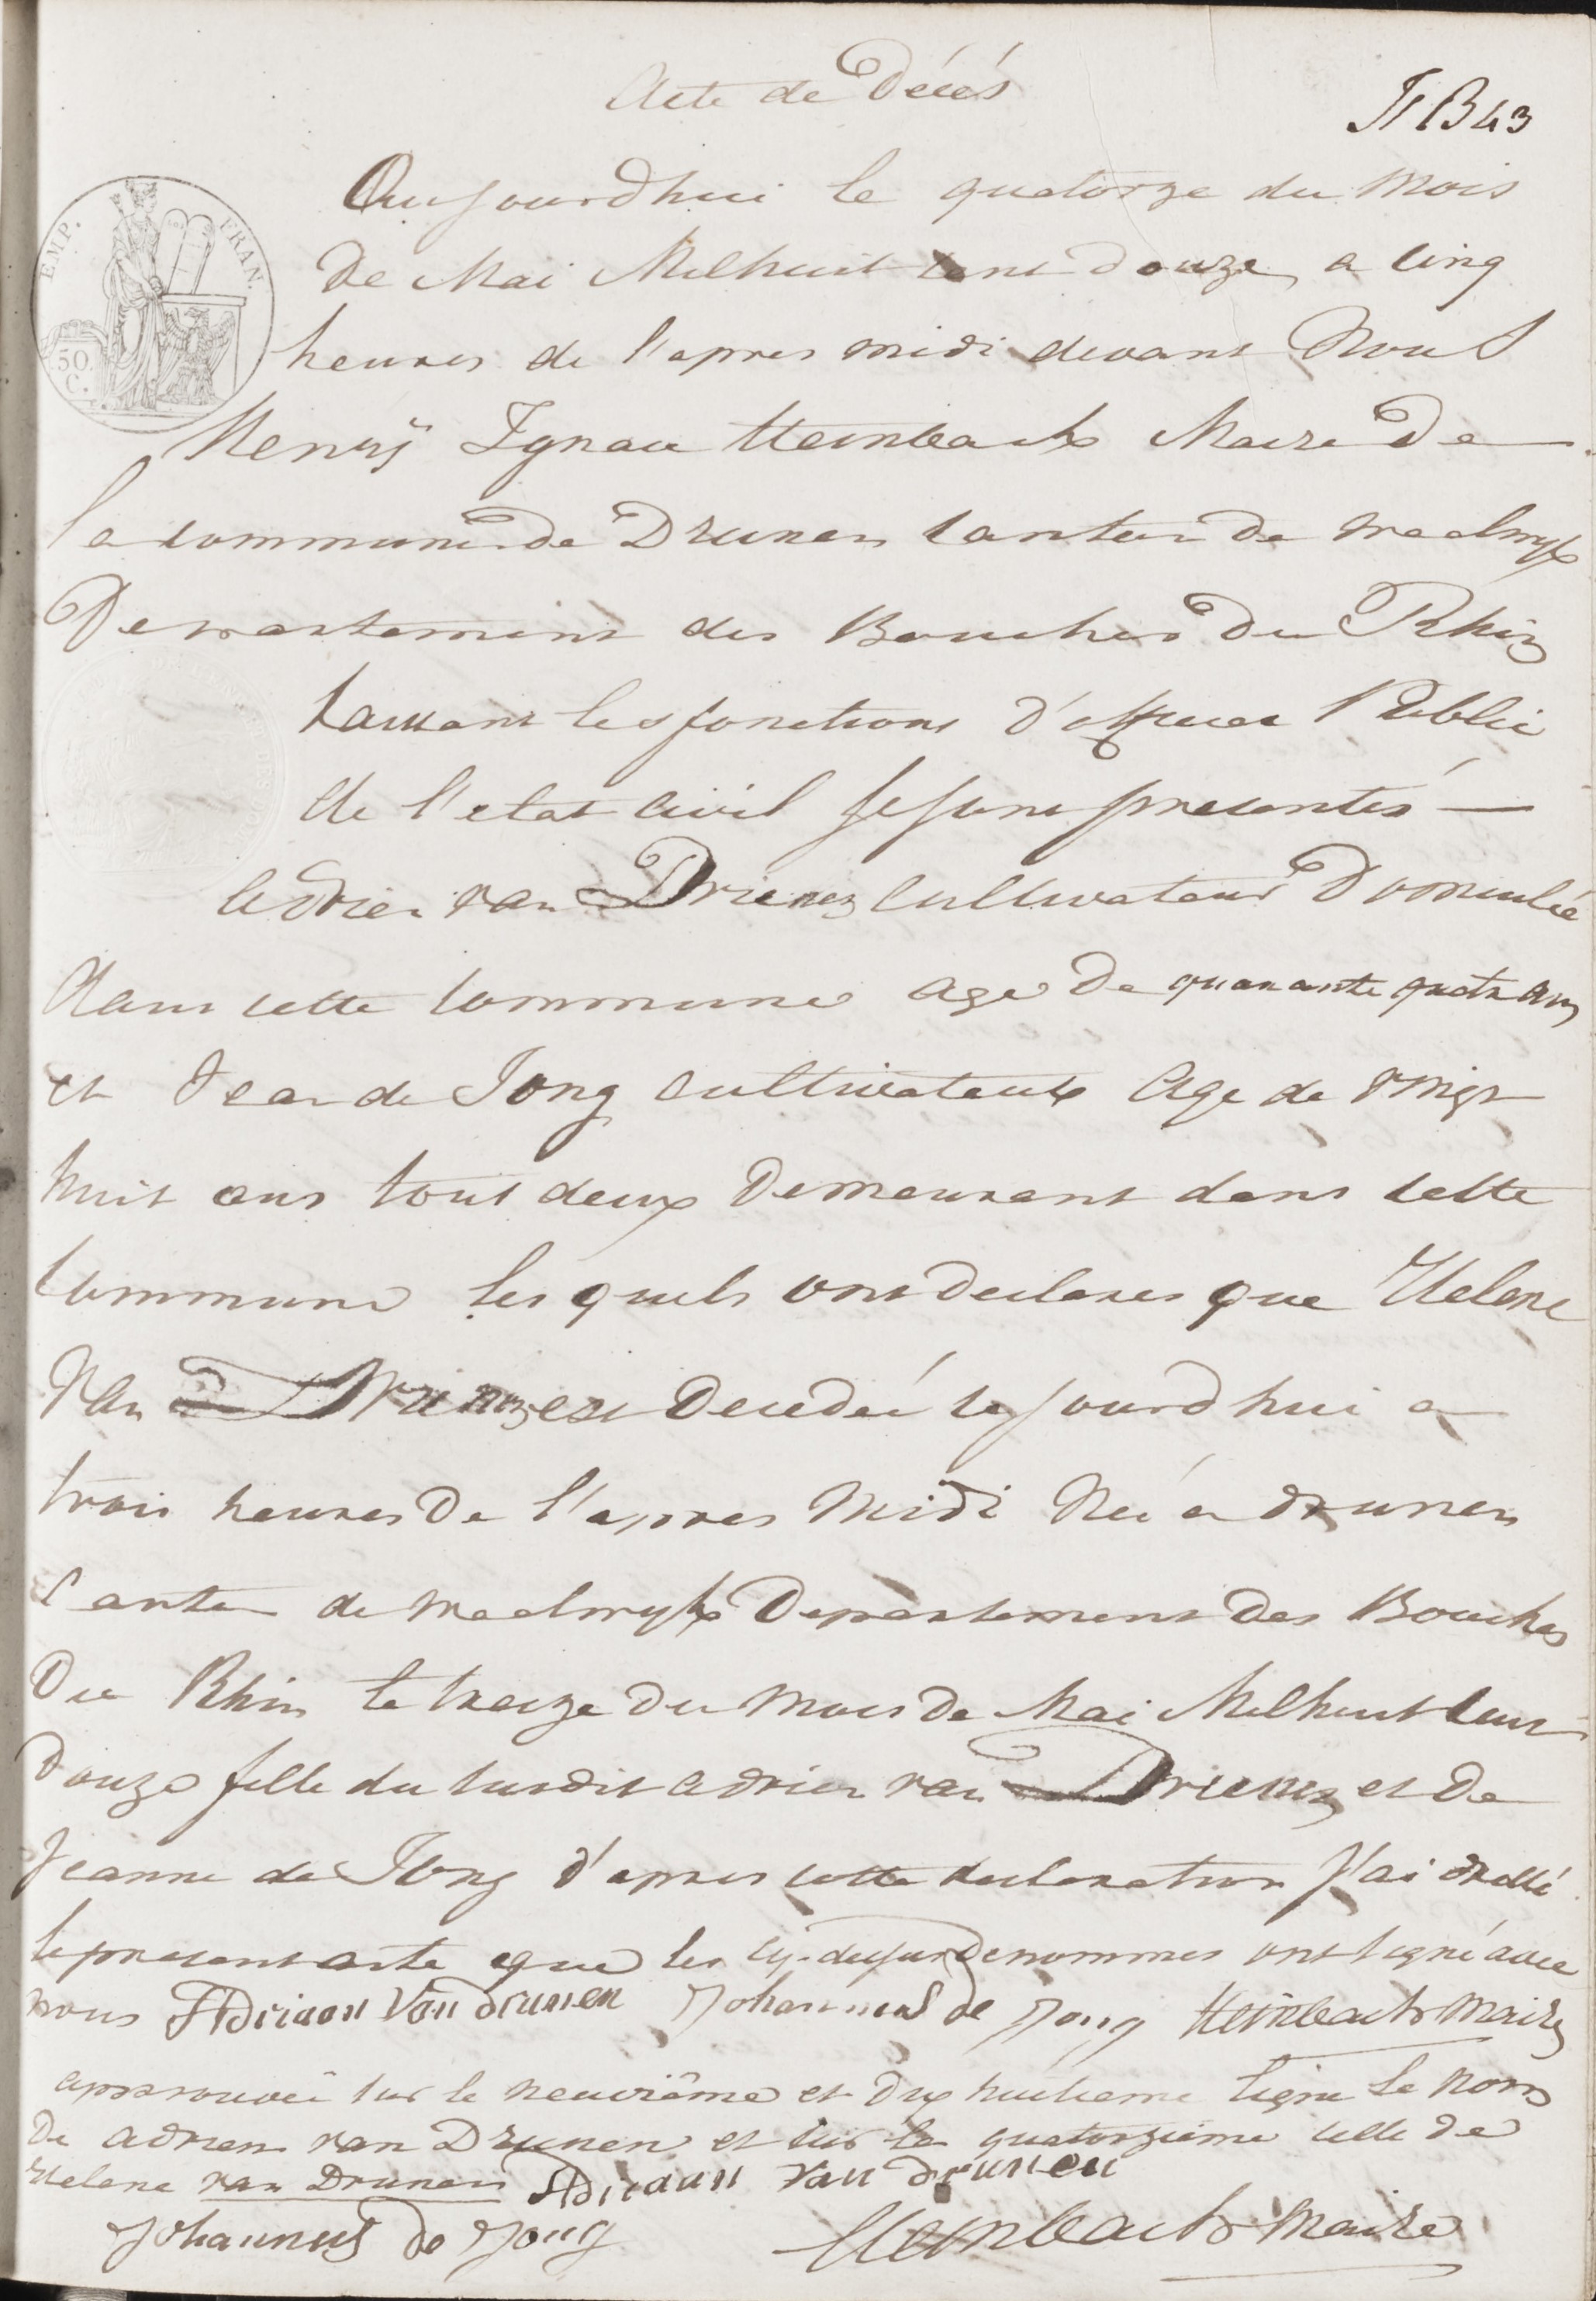 Acte de Décés
N B 43
Aujourdhui le quatorze du Mois
De Mai Milhuit Cent douze, a cinq
heures de l'apres midi devant Nous
EMP. FRAN.
50. C.
Henry Ignace Heinbach Maire De
la commune de Drunen Canton De Waalwyk
Departement des Bouches Du Rhin
faissant les fonctions d'officier Public
de l'etat Civil se sont presentés —
Adrien van Drunen Cultivateur Domicilié
dans cette Commune age De quarante quatre ans
et Jean de Jong cultivateur Age de vingt
huit ans tout deux Demeurant dans cette
Commune les quels ont Declares que Helene
Van Drunen est Decedeé ce jourdhui a
trois heures De l'apres Midi Neé a drunen
Canton de Waalwyk Departement Des Bouches
Du Rhin le treize Du Mois De Mai Milhuit Cent
Douze fille du susdit adrien van Drunen et De
Jeanne de Jong d'apres cette declaration J'ai dressé
le present acte que les cy-dessus Denommes ont signé avec
nous Adriaan Van drunen Johannes de Jong Heinbach Maire
approuveé sur le neuvième et dix huitieme ligne le nom
De adrien van Drunen et sur la quatorzieme celle De
Helene van Drunen Adriaan Van drunen
Johannes de Jong Heinbach Maire